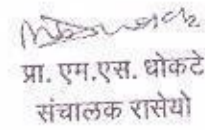 प्रा. एम.एस. धोकटे
संचालक रासेयो